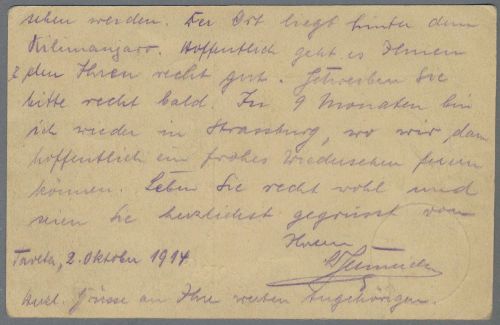 sehen werden. Der Ort liegt hinter dem
Kilimanjaro. Hoffentlich geht es Ihnen
& den Ihren recht gut. Schreiben Sie
bitte recht bald. In 9 Monaten bin
ich wieder in Strassburg, wo wir dann
hoffentlich ein frohes Wiedersehen feiern
können. Leben Sie recht wohl und
seien Sie herzlichst gegrüsst von
Ihrem
Taveta, 2. Oktober 1914
Grüsse an Ihre werten Angehörigen.